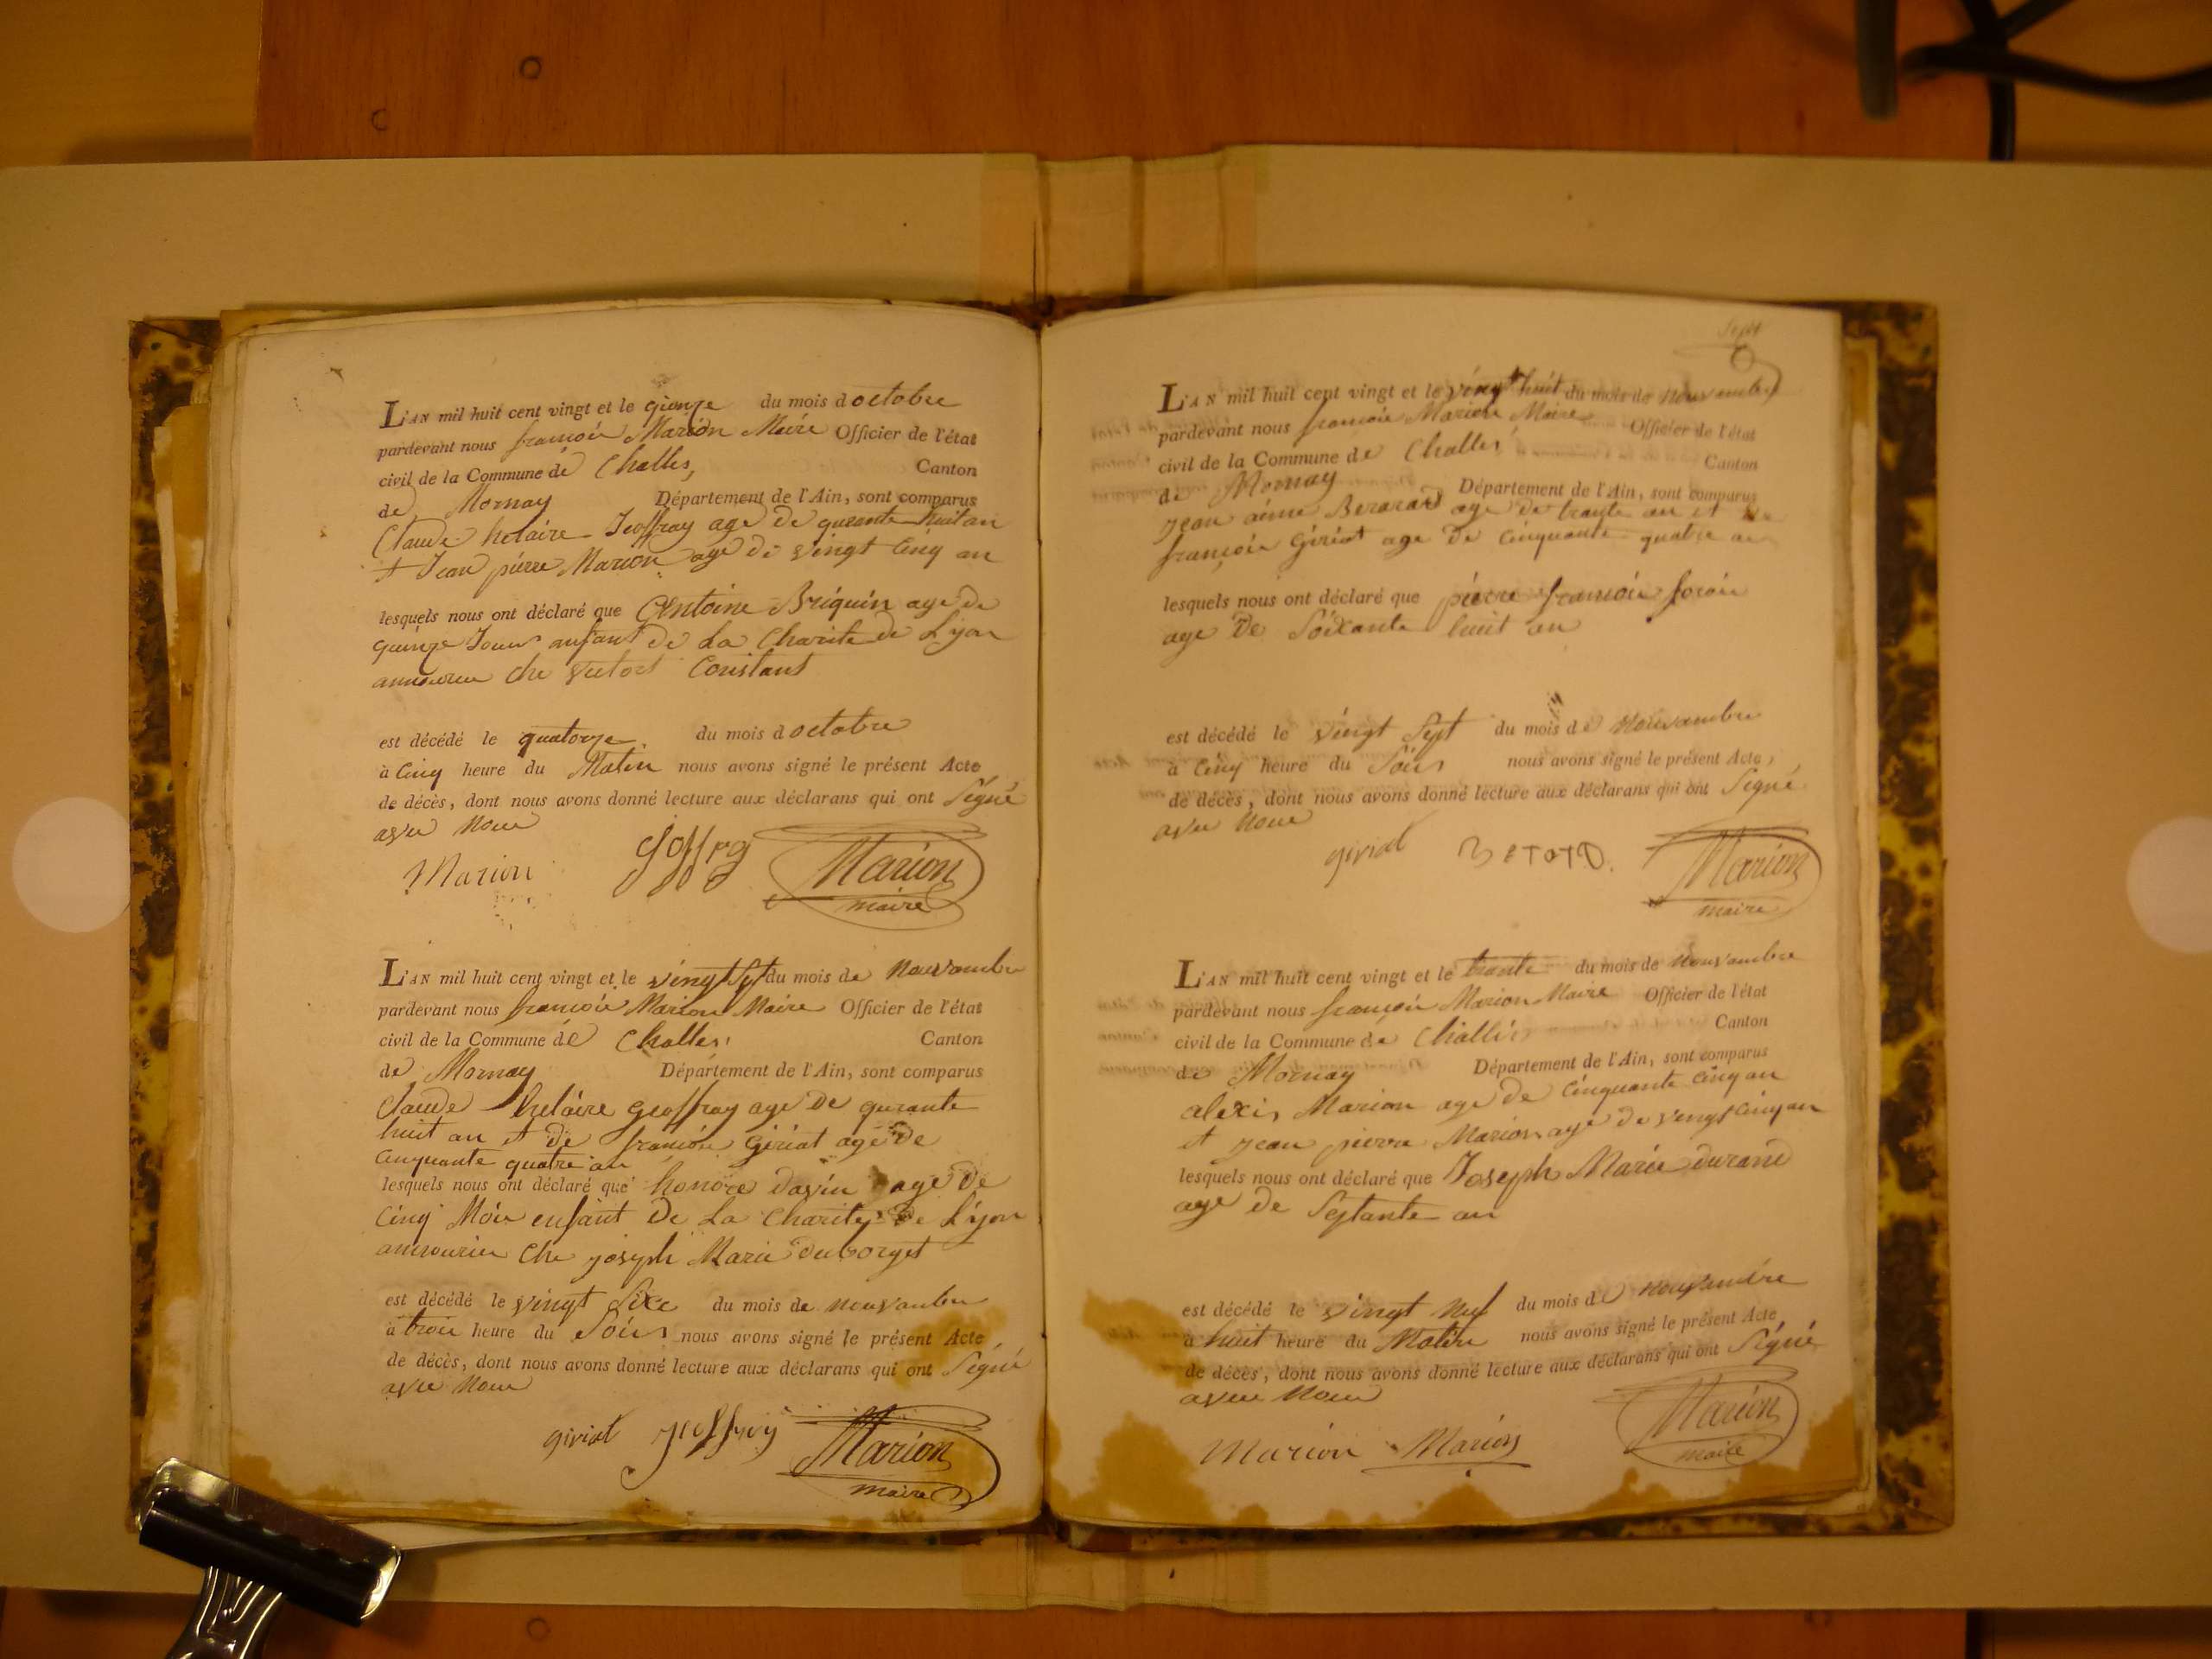 L'an mil huit cent vingt et le qienze du mois d octobre
pardevant nous francois Marion Maire Officier de l'état
civil de la Commune de Challes, Canton
de Mornay Département de l'Ain, sont comparus
Claude helaire Jeoffray age de quarante huit an
et Jean pierre Marion age de vingt cinq an
lesquels nous ont déclaré que Antoine Briquin age de
quinze Jour anfant de La Charite de Lyon
che victort Constant
est décédé le quatorze du mois d octobre
à Cinq heure du Matin nous avons signé le présent Acte
de décès, dont nous avons donné lecture aux déclarans qui ont Signé
avec Nous
Marion Marion
maire
L'an mil huit cent vingt et le vingt Sept du mois de Nouvambre
pardevant nous francois Marion Maire Officier de l'état
civil de la Commune de Challes Canton
de Mornay Département de l'Ain, sont comparus
Claude helaire geoffray age de quarante
huit an et de francois Giriat age de
cinquante quatre an
lesquels nous ont déclaré que honore davin age de
Cinq Mois enfant De La Charite De Lyon
che joseph Marie duborget
est décédé le vingt Sixe du mois de nouvanbre
à trois heure du Soir nous avons signé le présent Acte
de décès, dont nous avons donné lecture aux déclarans qui ont Signé
avec Nous
giriat jeoffray Marion
maire
Sept
L'an mil huit cent vingt et le vingt huit du mois de Nouvambre
pardevant nous francois Marion Maire Officier de l'état
civil de la Commune de Challes Canton
de Mornay Département de l'Ain, sont comparus
jean aime Berarad age de trante an et de
françois Giriat age De Cinquante quatre an
lesquels nous ont déclaré que pierre francois
age De Soixante huit an
est décédé le vingt Sept du mois de Nouvambre
à Cinq heure du Soir nous avons signé le présent Acte
de décès, dont nous avons donné lecture aux déclarans qui ont Signé
avec Nous
giriat Marion
maire
L'an mil huit cent vingt et le trante du mois de Nouvambre
pardevant nous françois Marion Maire Officier de l'état
civil de la Commune de Challes Canton
de Mornay Département de l'Ain, sont comparus
alexis Marion age de Cinquante Cinq an
et jean pierre Marion age de vingt Cinq an
lesquels nous ont déclaré que Joseph Marie durand
age de Septante an
est décédé le vingt Neuf du mois de nouvambre
à huit heure du Matin nous avons signé le présent Acte
de décès, dont nous avons donné lecture aux déclarans qui ont Signé
avec Nous
Marion Marion Marion
maire